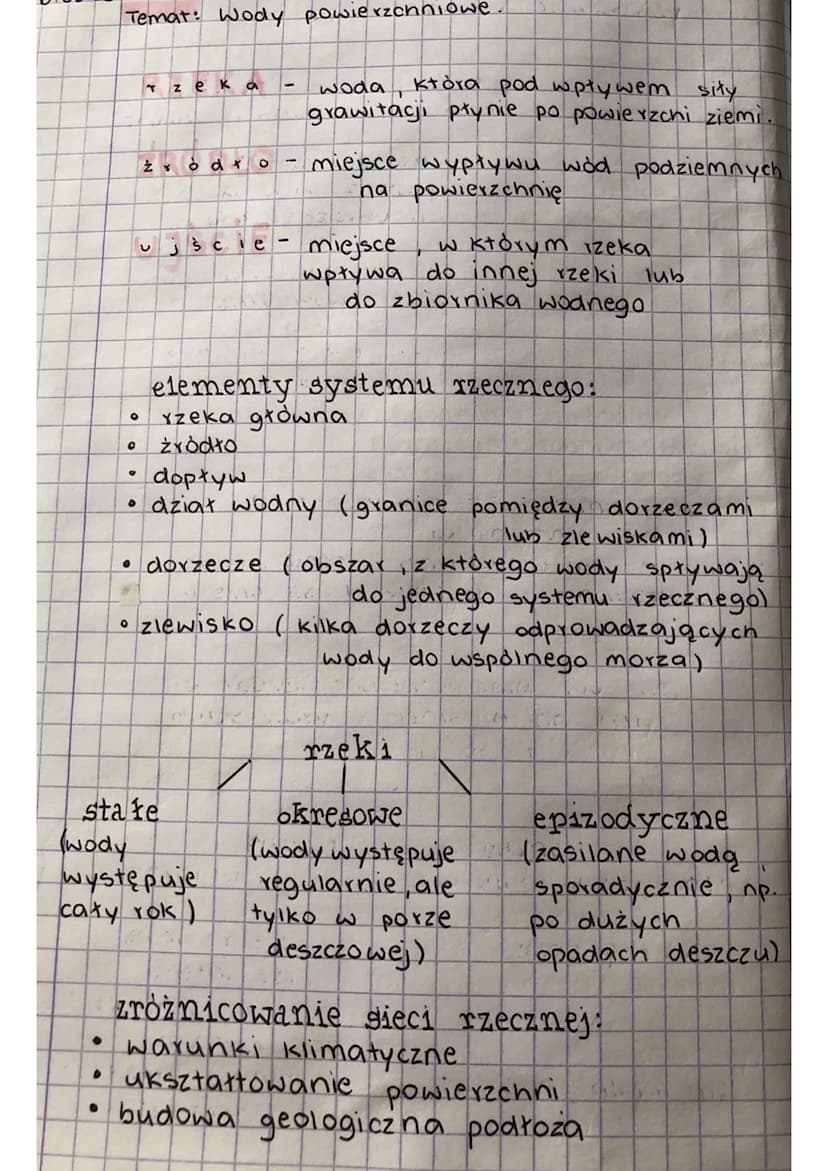 Temat: Wody powierzchniowe.
rzeka - woda, która pod wpływem siły
grawitacji płynie po powierzchni ziemi.
źródło - miejsce wypływu wód podziemnych
na powierzchnię
ujście - miejsce, w którym rzeka
wpływa do innej rzeki lub
do zbiornika wodnego
elementy systemu rzecznego:
• rzeka główna
• źródło
• dopływ
• dział wodny (granice pomiędzy dorzeczami
lub zlewiskami)
• dorzecze (obszar, z którego wody spływają
do jednego systemu rzecznego)
• zlewisko (kilka dorzeczy odprowadzających
wody do wspólnego morza)
rzeki
stałe okresowe epizodyczne
(wody (wody występuje (zasilane wodą
występuje regularnie, ale sporadycznie, np.
cały rok) tylko w porze po dużych
deszczowej) opadach deszczu)
zróżnicowanie sieci rzecznej:
• warunki klimatyczne
• ukształtowanie powierzchni
• budowa geologiczna podłoża